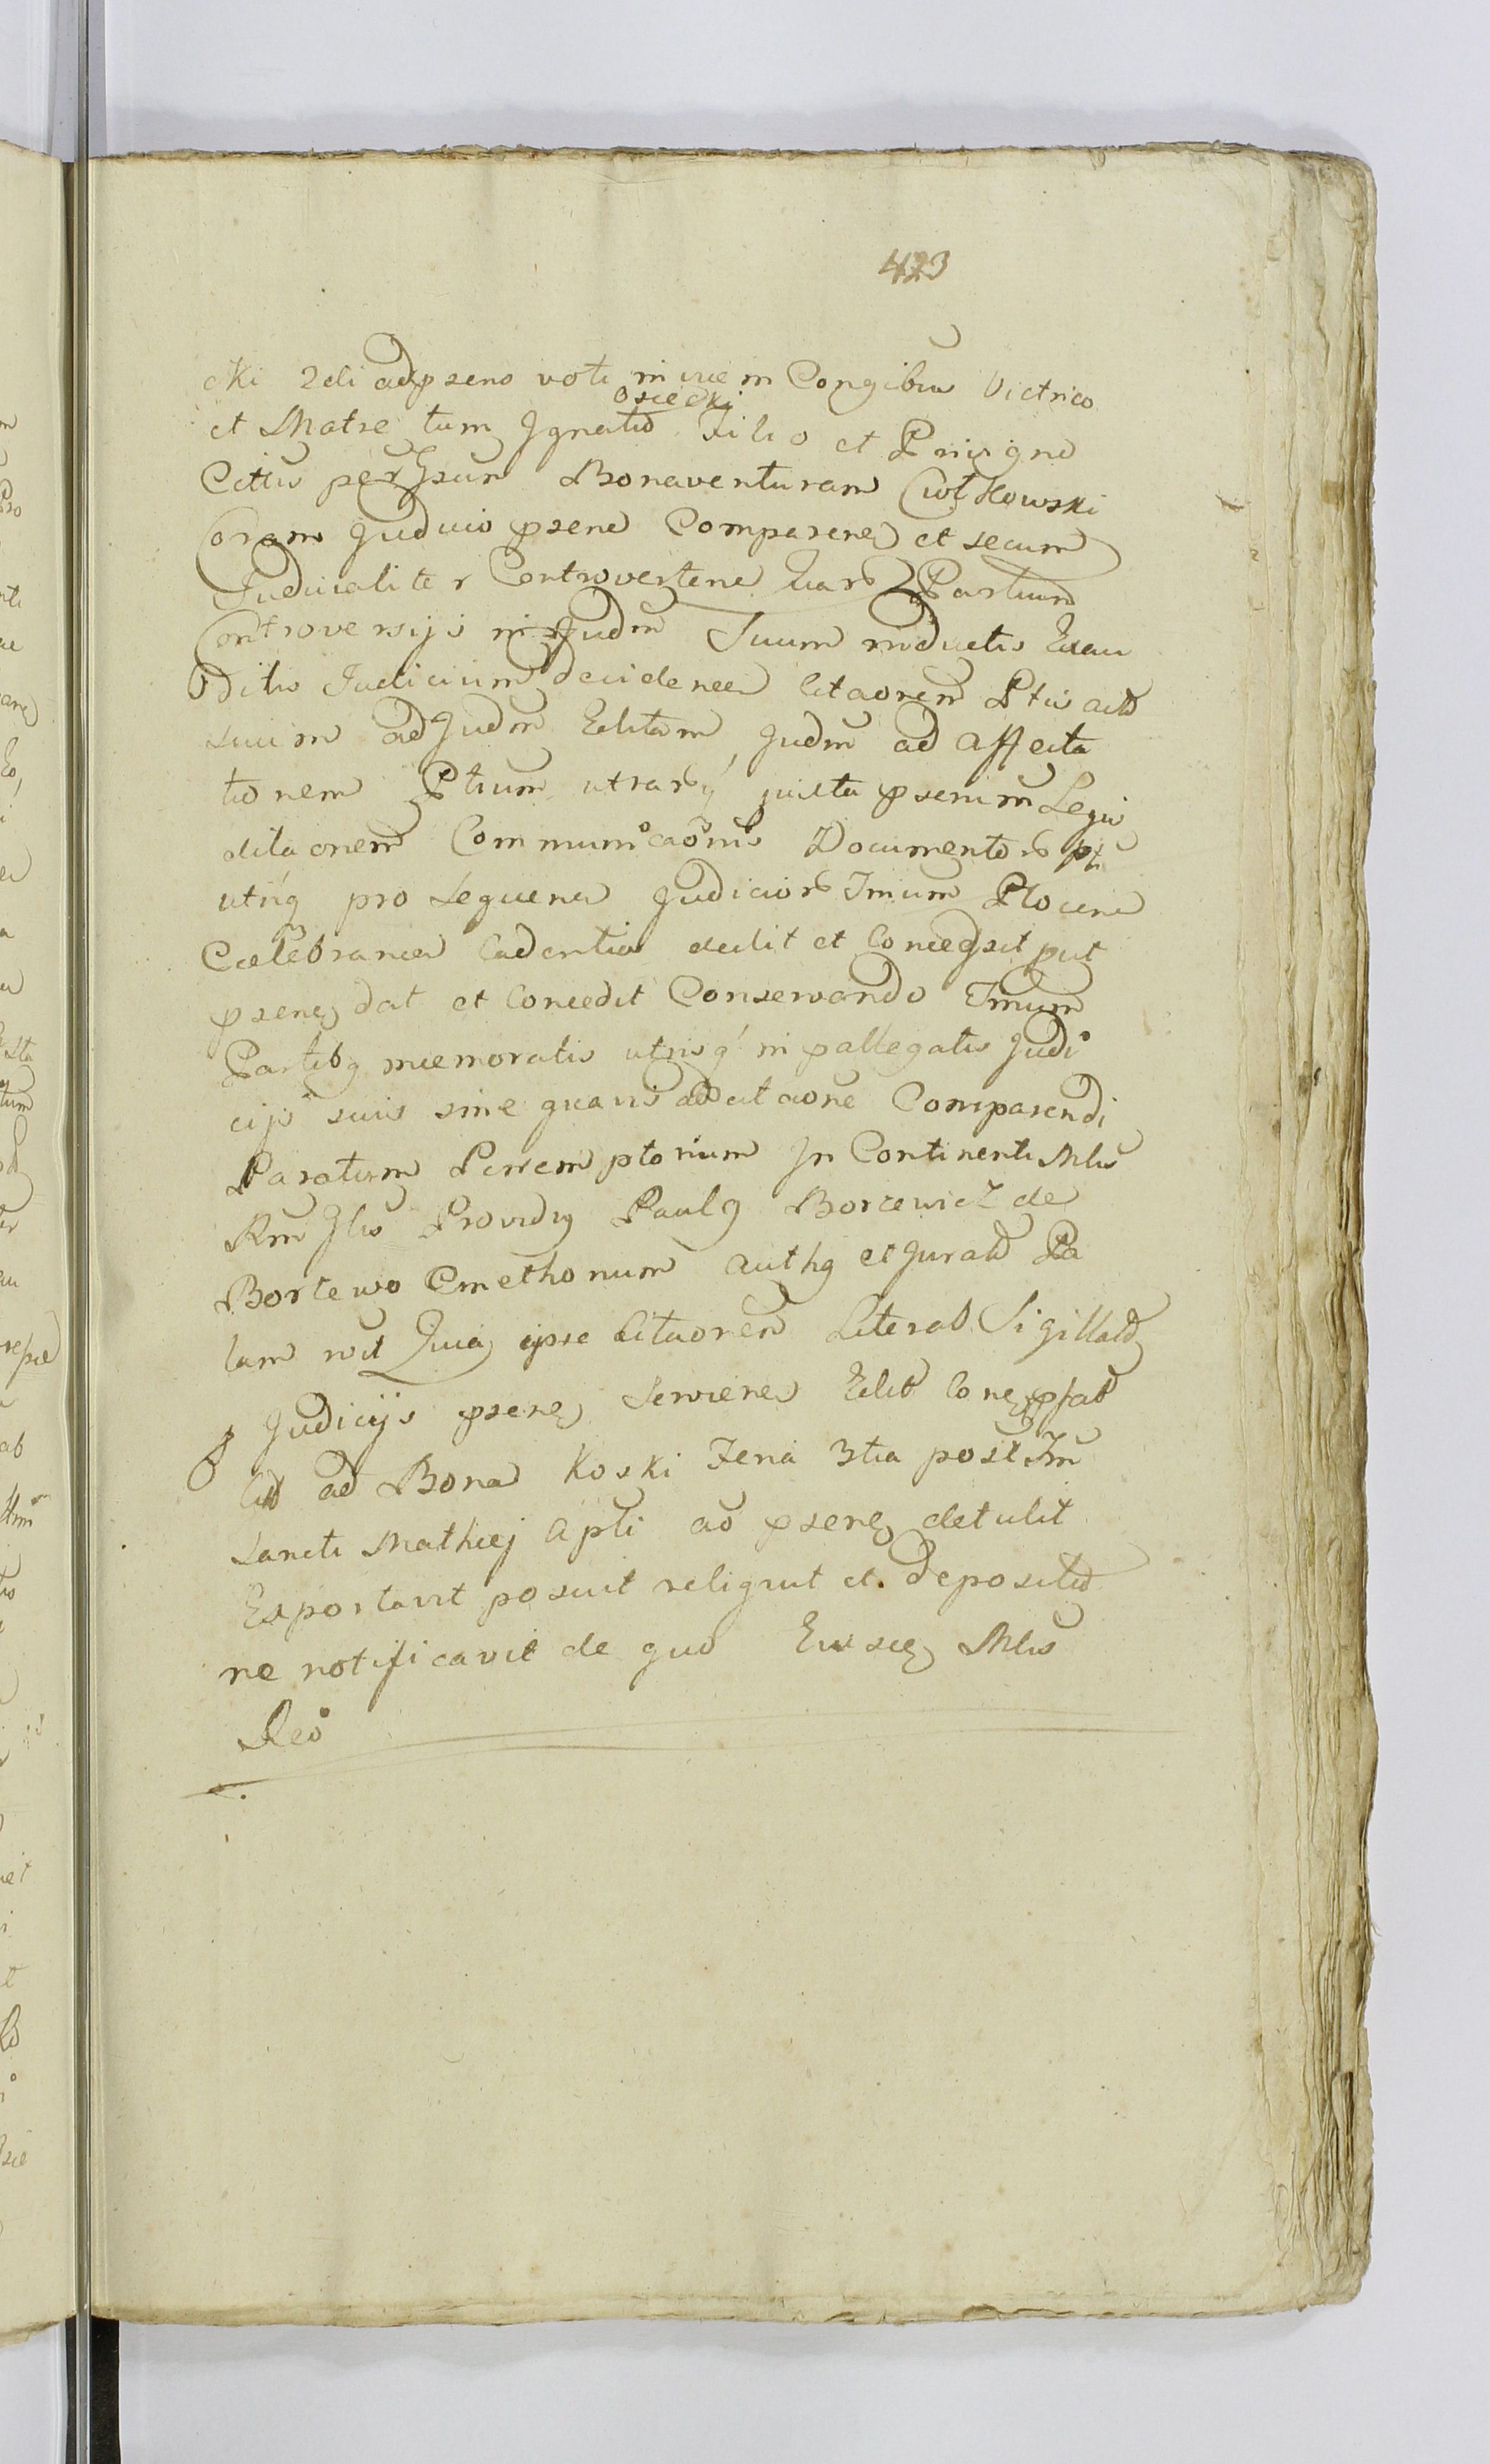 423
cki 2di ad psens voti invicem Congibus Victrico
Osiecki
et Matre tum Ignatio Filio et Privigno
Cittis per Gsum Bonaventuram Ciołkowski
Coram Judicio psene Comparene et secum
Judicialiter Controvertene Quar Partium
Controversijs in Judm Suum inductis Exau
ditis Judicium decidenee Citaonem Ptis act
suum ad Judm Editam Judm ad affecta
tionem Ptium utrarq juxta psenim Legis
ditaonem Communicaonis Documentor
utriq pro sequene Judicior Tmum Plocene
Caelebranea Cadentia dedit et Concessit put
psene dat et Concedit Conservando Tmum
Partibq memoratis utrisq in pallegatis Judi
cijs suis sine quavis adcitaone Comparendi
Paratum Peremptorium In Continenti Mlis
Rm Jlis Providq Paulq Borzewicz de
Borzewo Cmethonum authq et Jurat Pa
lam rcit Quia ipse Citaonem Literal Sigillat
Judicijs psene Serviene Edit Conq pfat
Cit ad Bona Koski Feria 3tia post Fm
Sancti Mathiej Apli ao psene detulit
Exportavit posuit reliqvit et. deposita
ne notificavit de quo Ewsce Mlis
Reo